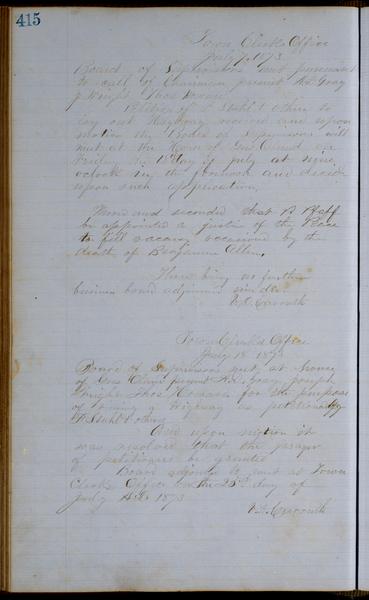 415
Town Clerks Office
July 7, 1873
Board of Supervisors met pursuant
to call of Chairman present H. Gray
J Knight Thos
Petition of Stuhl & others to
lay out Highway received and upon
motion the Board of Supervisors will
meet at the House of Geo on
Friday the 18 day of July at nine
oclock in the forenoon and decide
upon such application,
Moved and seconded that A Pfaff
be appointed a justice of the Peace
to fill vacancy occasioned by the
death of Benjamin Allen,
There being no further
business board adjourned sine die.
Town Clerks Office
July 18 1873
Board of Supervisors met at house
of Geo present H. Gray Joseph
Knight Thos for the purpose
of a Highway as petitioned by
Stuhl & others
And upon motion it
was resolved that the prayer
of petitioners be granted
Board adjourned to meet at Town
Clerks Office on the 25th day of
July 1873